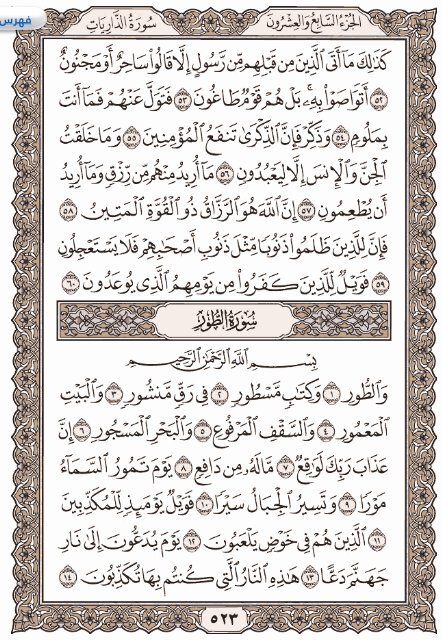 فهرس
سُورَةُ الذَّارِيَاتِ
الجُزْءُ السَّابِعُ وَالعِشْرُونَ
كَذَٰلِكَ مَآ أَتَى ٱلَّذِينَ مِن قَبْلِهِم مِّن رَّسُولٍ إِلَّا قَالُوا۟ سَاحِرٌ أَوْ مَجْنُونٌ
٥٢ أَتَوَاصَوْا۟ بِهِۦ ۚ بَلْ هُمْ قَوْمٌ طَاغُونَ ٥٣ فَتَوَلَّ عَنْهُمْ فَمَآ أَنتَ
بِمَلُومٍ ٥٤ وَذَكِّرْ فَإِنَّ ٱلذِّكْرَىٰ تَنفَعُ ٱلْمُؤْمِنِينَ ٥٥ وَمَا خَلَقْتُ
ٱلْجِنَّ وَٱلْإِنسَ إِلَّا لِيَعْبُدُونِ ٥٦ مَآ أُرِيدُ مِنْهُم مِّن رِّزْقٍ وَمَآ أُرِيدُ
أَن يُطْعِمُونِ ٥٧ إِنَّ ٱللَّهَ هُوَ ٱلرَّزَّاقُ ذُو ٱلْقُوَّةِ ٱلْمَتِينُ ٥٨
فَإِنَّ لِلَّذِينَ ظَلَمُوا۟ ذَنُوبًا مِّثْلَ ذَنُوبِ أَصْحَٰبِهِمْ فَلَا يَسْتَعْجِلُونِ
٥٩ فَوَيْلٌ لِّلَّذِينَ كَفَرُوا۟ مِن يَوْمِهِمُ ٱلَّذِى يُوعَدُونَ ٦٠
سُورَةُ الطُّورِ
بِسْمِ ٱللَّهِ ٱلرَّحْمَٰنِ ٱلرَّحِيمِ
وَٱلطُّورِ ١ وَكِتَٰبٍ مَّسْطُورٍ ٢ فِى رَقٍّ مَّنشُورٍ ٣ وَٱلْبَيْتِ
ٱلْمَعْمُورِ ٤ وَٱلسَّقْفِ ٱلْمَرْفُوعِ ٥ وَٱلْبَحْرِ ٱلْمَسْجُورِ ٦ إِنَّ
عَذَابَ رَبِّكَ لَوَٰقِعٌ ٧ مَّا لَهُۥ مِن دَافِعٍ ٨ يَوْمَ تَمُورُ ٱلسَّمَآءُ
مَوْرًا ٩ وَتَسِيرُ ٱلْجِبَالُ سَيْرًا ١٠ فَوَيْلٌ يَوْمَئِذٍ لِّلْمُكَذِّبِينَ
١١ ٱلَّذِينَ هُمْ فِى خَوْضٍ يَلْعَبُونَ ١٢ يَوْمَ يُدَعُّونَ إِلَىٰ نَارِ
جَهَنَّمَ دَعًّا ١٣ هَٰذِهِ ٱلنَّارُ ٱلَّتِى كُنتُم بِهَا تُكَذِّبُونَ ١٤
٥٢٣